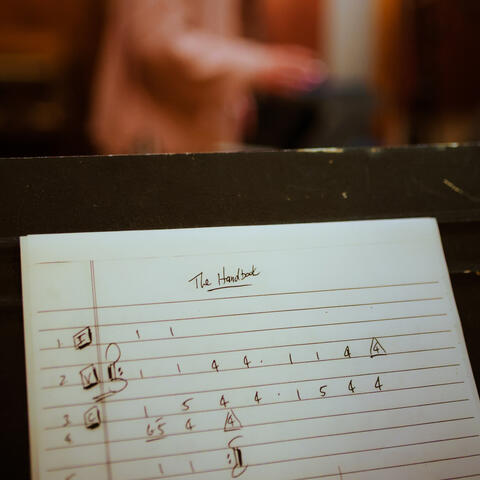 The Handbook
1 I 1 1
2 V 1 1 4 4 . 1 1 4 4
3 C 1 5 4 4 . 1 5 4 4
4 65 4 4
5 1 1